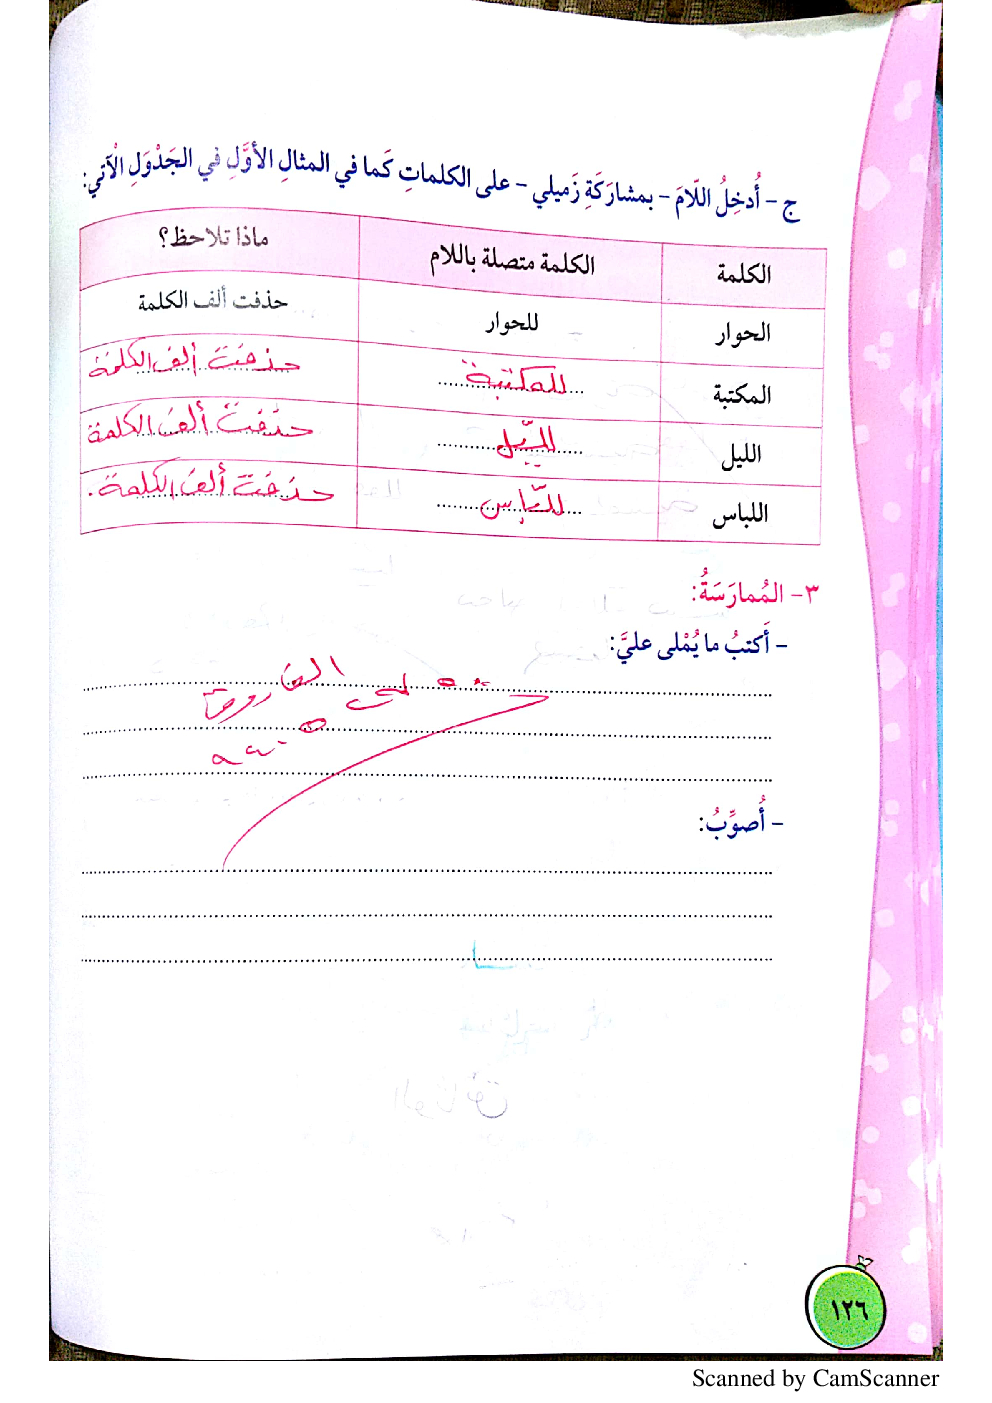 ج - أُدخِلُ اللّامَ - بمشارَكَةِ زَميلي - على الكلماتِ كَما في المثالِ الأوَّلِ في الجَدْوَلِ الْآتي:
الكلمة الكلمة متصلة باللام ماذا تلاحظ؟
الحوار للحوار حذفت ألف الكلمة
المكتبة للمكتبة حذفت ألف الكلمة
الليل لليل حذفت ألف الكلمة
اللباس للباس حذفت ألف الكلمة.
٣- المُمارَسَةُ:
- أَكتبُ ما يُمْلى عليَّ:
- أُصوِّبُ:
١٢٦
Scanned by CamScanner